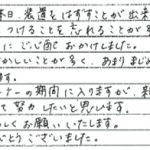 日、装置をはずすことが出来
つけることを忘れることが
にご心配おかけしました。
かしいことが多く、あまりまじめ
ます。
ナーの期間に入りますが、
て努力したいと思います。
しくお願いいたします。
とうございました。